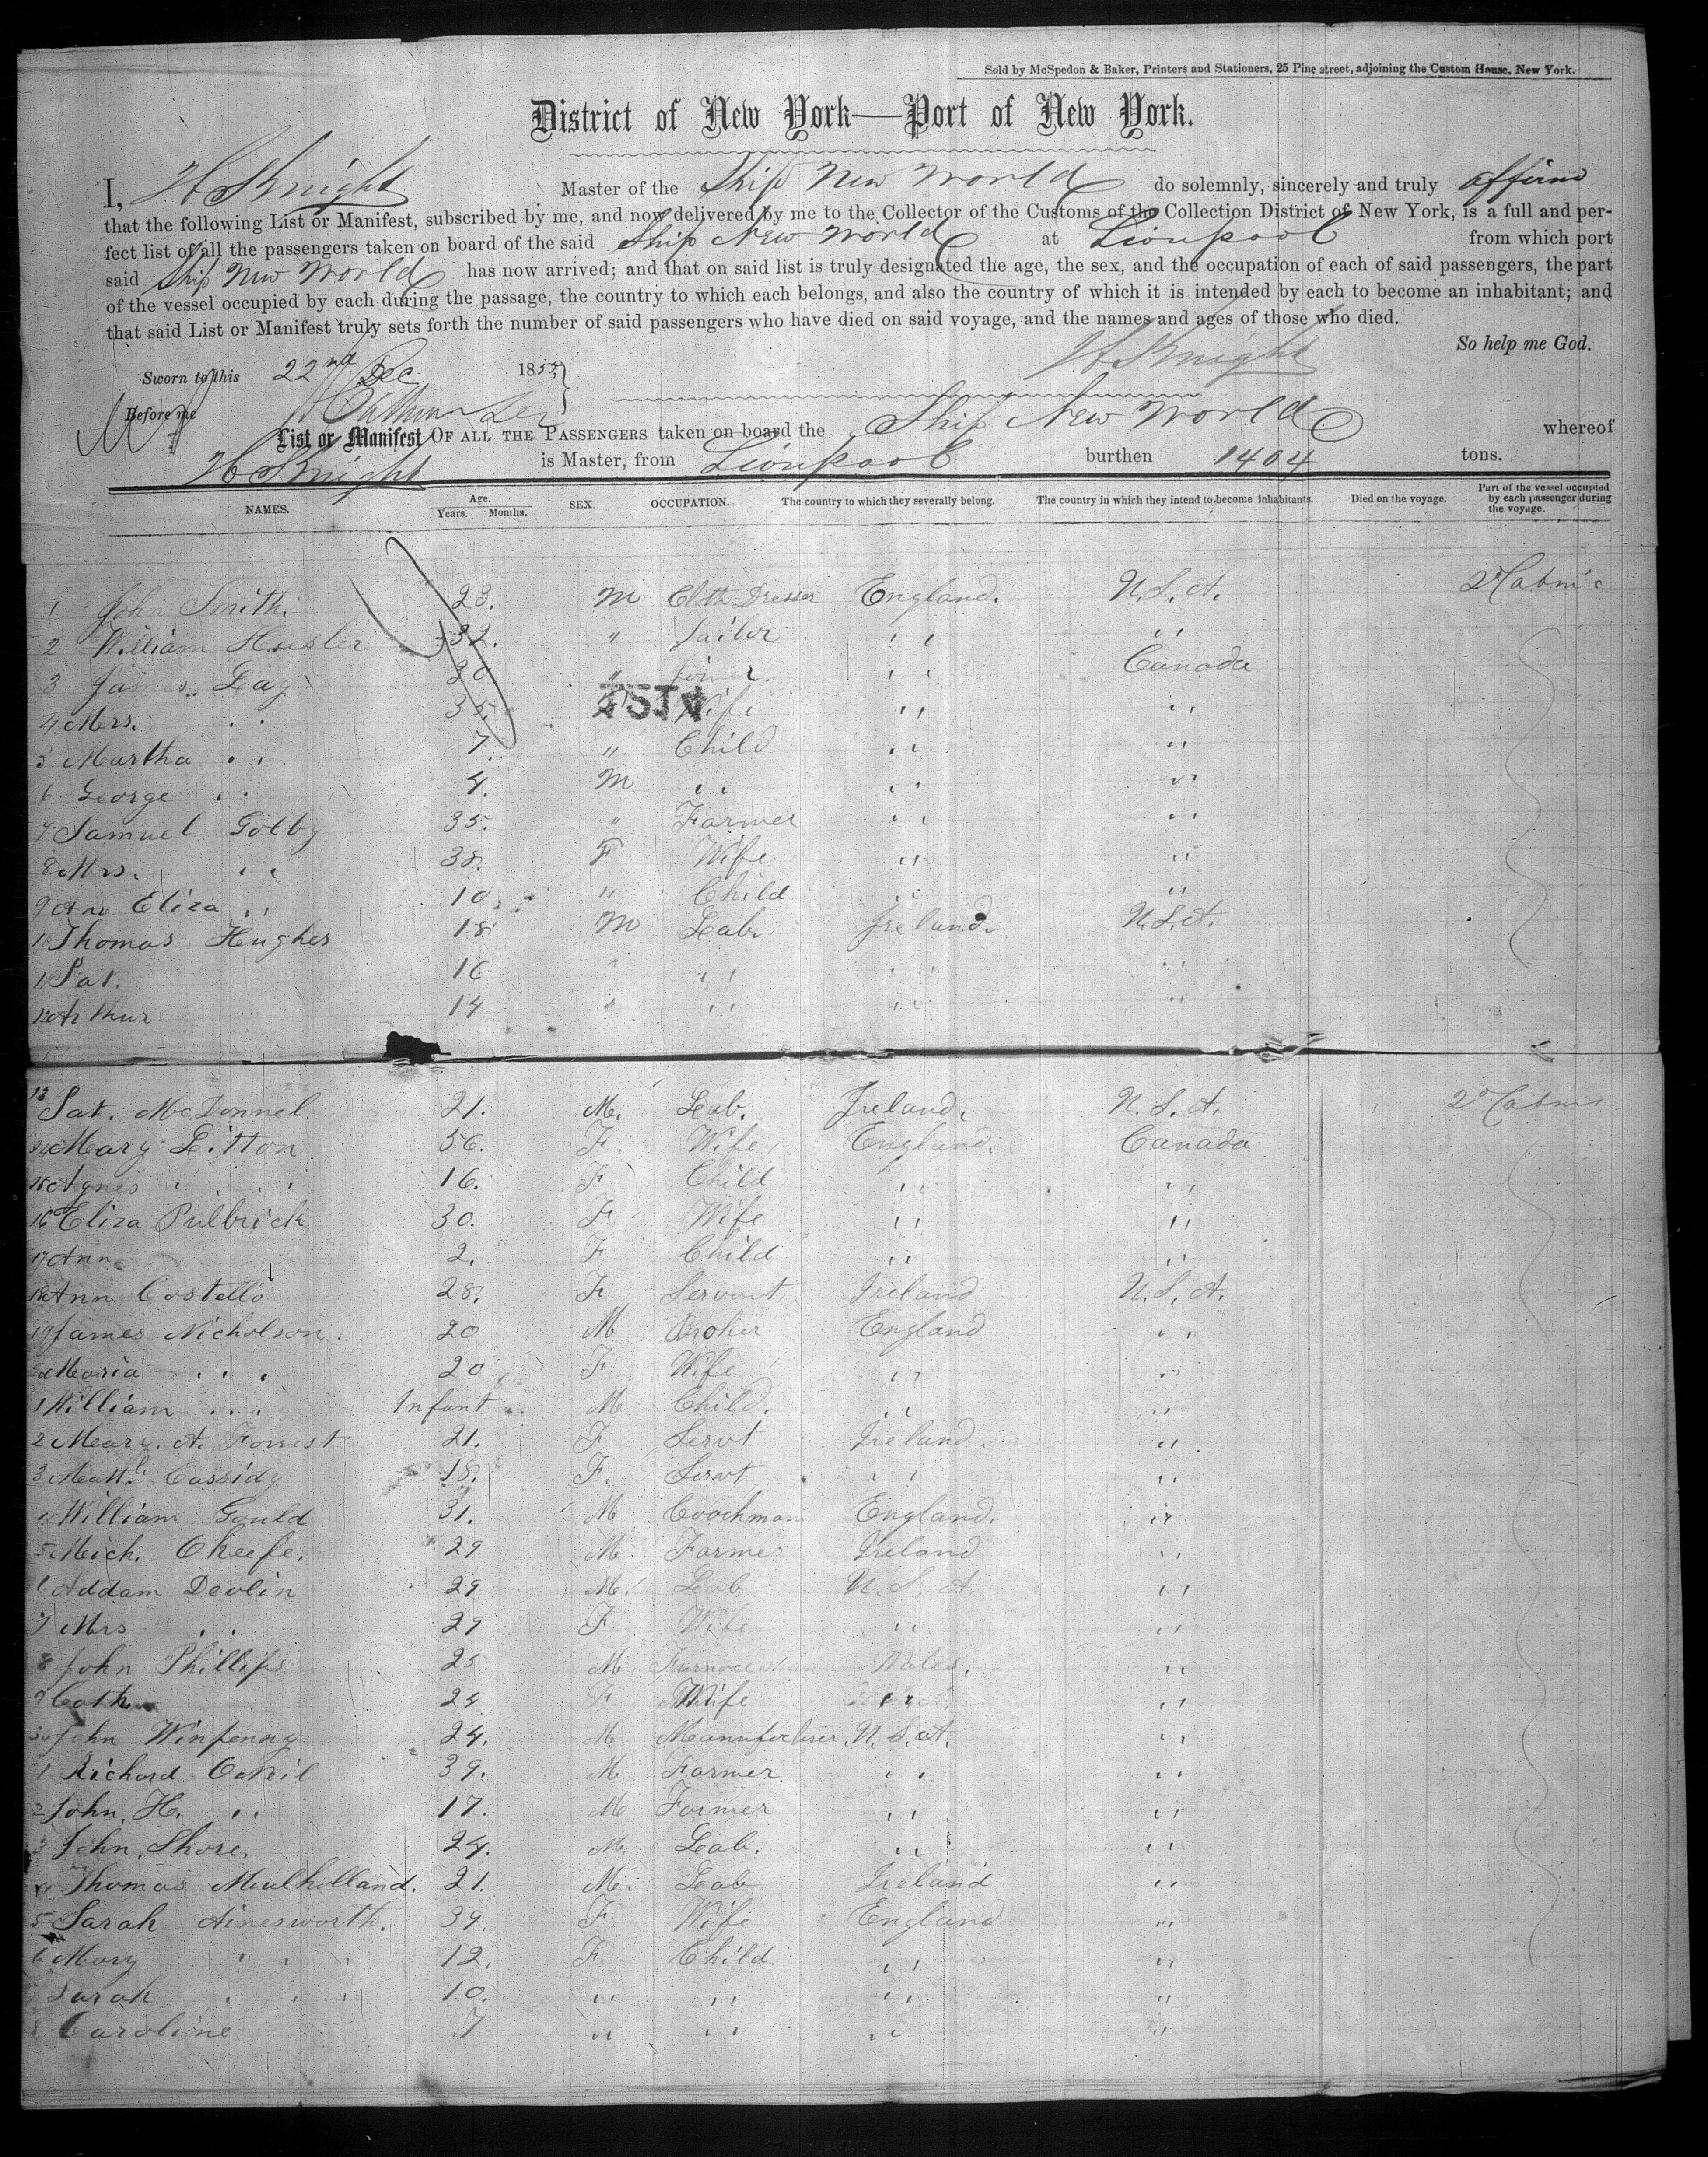 Sold by McSpedon & Baker, Printers and Stationers, 25 Pine street, adjoining the Custom House, New York.
District of New York—Port of New York.
I, H Knight Master of the Ship New World do solemnly, sincerely and truly affirm
that the following List or Manifest, subscribed by me, and now delivered by me to the Collector of the Customs of the Collection District of New York, is a full and per-
fect list of all the passengers taken on board of the said Ship New World at Liverpool from which port
said Ship New World has now arrived; and that on said list is truly designated the age, the sex, and the occupation of each of said passengers, the part
of the vessel occupied by each during the passage, the country to which each belongs, and also the country of which it is intended by each to become an inhabitant; and
that said List or Manifest truly sets forth the number of said passengers who have died on said voyage, and the names and ages of those who died.
So help me God.
H Knight
Sworn to this 22nd Dec 185
Before me
List or Manifest OF ALL THE PASSENGERS taken on board the Ship New World whereof
H Knight is Master, from Liverpool burthen 1404 tons.
NAMES. Age. Years. Months. SEX. OCCUPATION. The country to which they severally belong. The country in which they intend to become inhabitants. Died on the voyage. Part of the vessel occupied by each passenger during the voyage.
1 John Smith. 23. M Cloth Dresser England. U.S.A. 2d Cabin
2 William 32. " Tailor " "
3 James Day 30 " Joiner. " Canada
4 Mrs. " 35. Wife " "
5 Martha " 7. " Child " "
6 George " 4. M " " "
7 Samuel Golby 35. " Farmer " "
8 Mrs. " 38. F Wife " "
9 Ann Eliza " 10. " Child " "
10 Thomas Hughes 18 M Lab. Ireland. U.S.A.
11 Pat. 16 " " " "
12 Arthur 14 " " " "
13 Pat. McDonnel 21. M. Lab. Ireland. U.S.A. 2d Cabin
14 Mary Litton 56. F. Wife England. Canada
15 Agnes " 16. F Child " "
16 Eliza Pulbrick 30. F Wife " "
17 Ann 2. F Child " "
18 Ann Costello 28. F Servant Ireland U.S.A.
19 James Nicholson. 20 M Broker England "
20 Maria " 20 F Wife " "
1 William " Infant M Child. " "
2 Mary. A. Forrest 21. F Servt Ireland. "
3 Cassidy 18. F. Servt " "
4 William Gould 31. M Coachman England. "
5 Mich. Okeefe. 29 M. Farmer Ireland "
6 Addam Devlin 29 M. Lab U.S.A. "
7 Mrs " 29 F. Wife " "
8 John Phillips 25 M Furnace man Wales. "
9 Cath 24 F Wife "
30 John Winpenny 24. M Manufacturer. U.S.A. "
1 Richard ONeil 39. M Farmer " "
2 John. H. " 17. M Farmer " "
3 John Shore. 24. M. Lab. " "
4 Thomas Mulholland. 21. M. Lab Ireland "
5 Sarah Ainesworth. 39. F Wife England "
6 Mary " 12. F. Child " "
7 Sarah " 10. " " " "
8 Caroline 7 " " " "